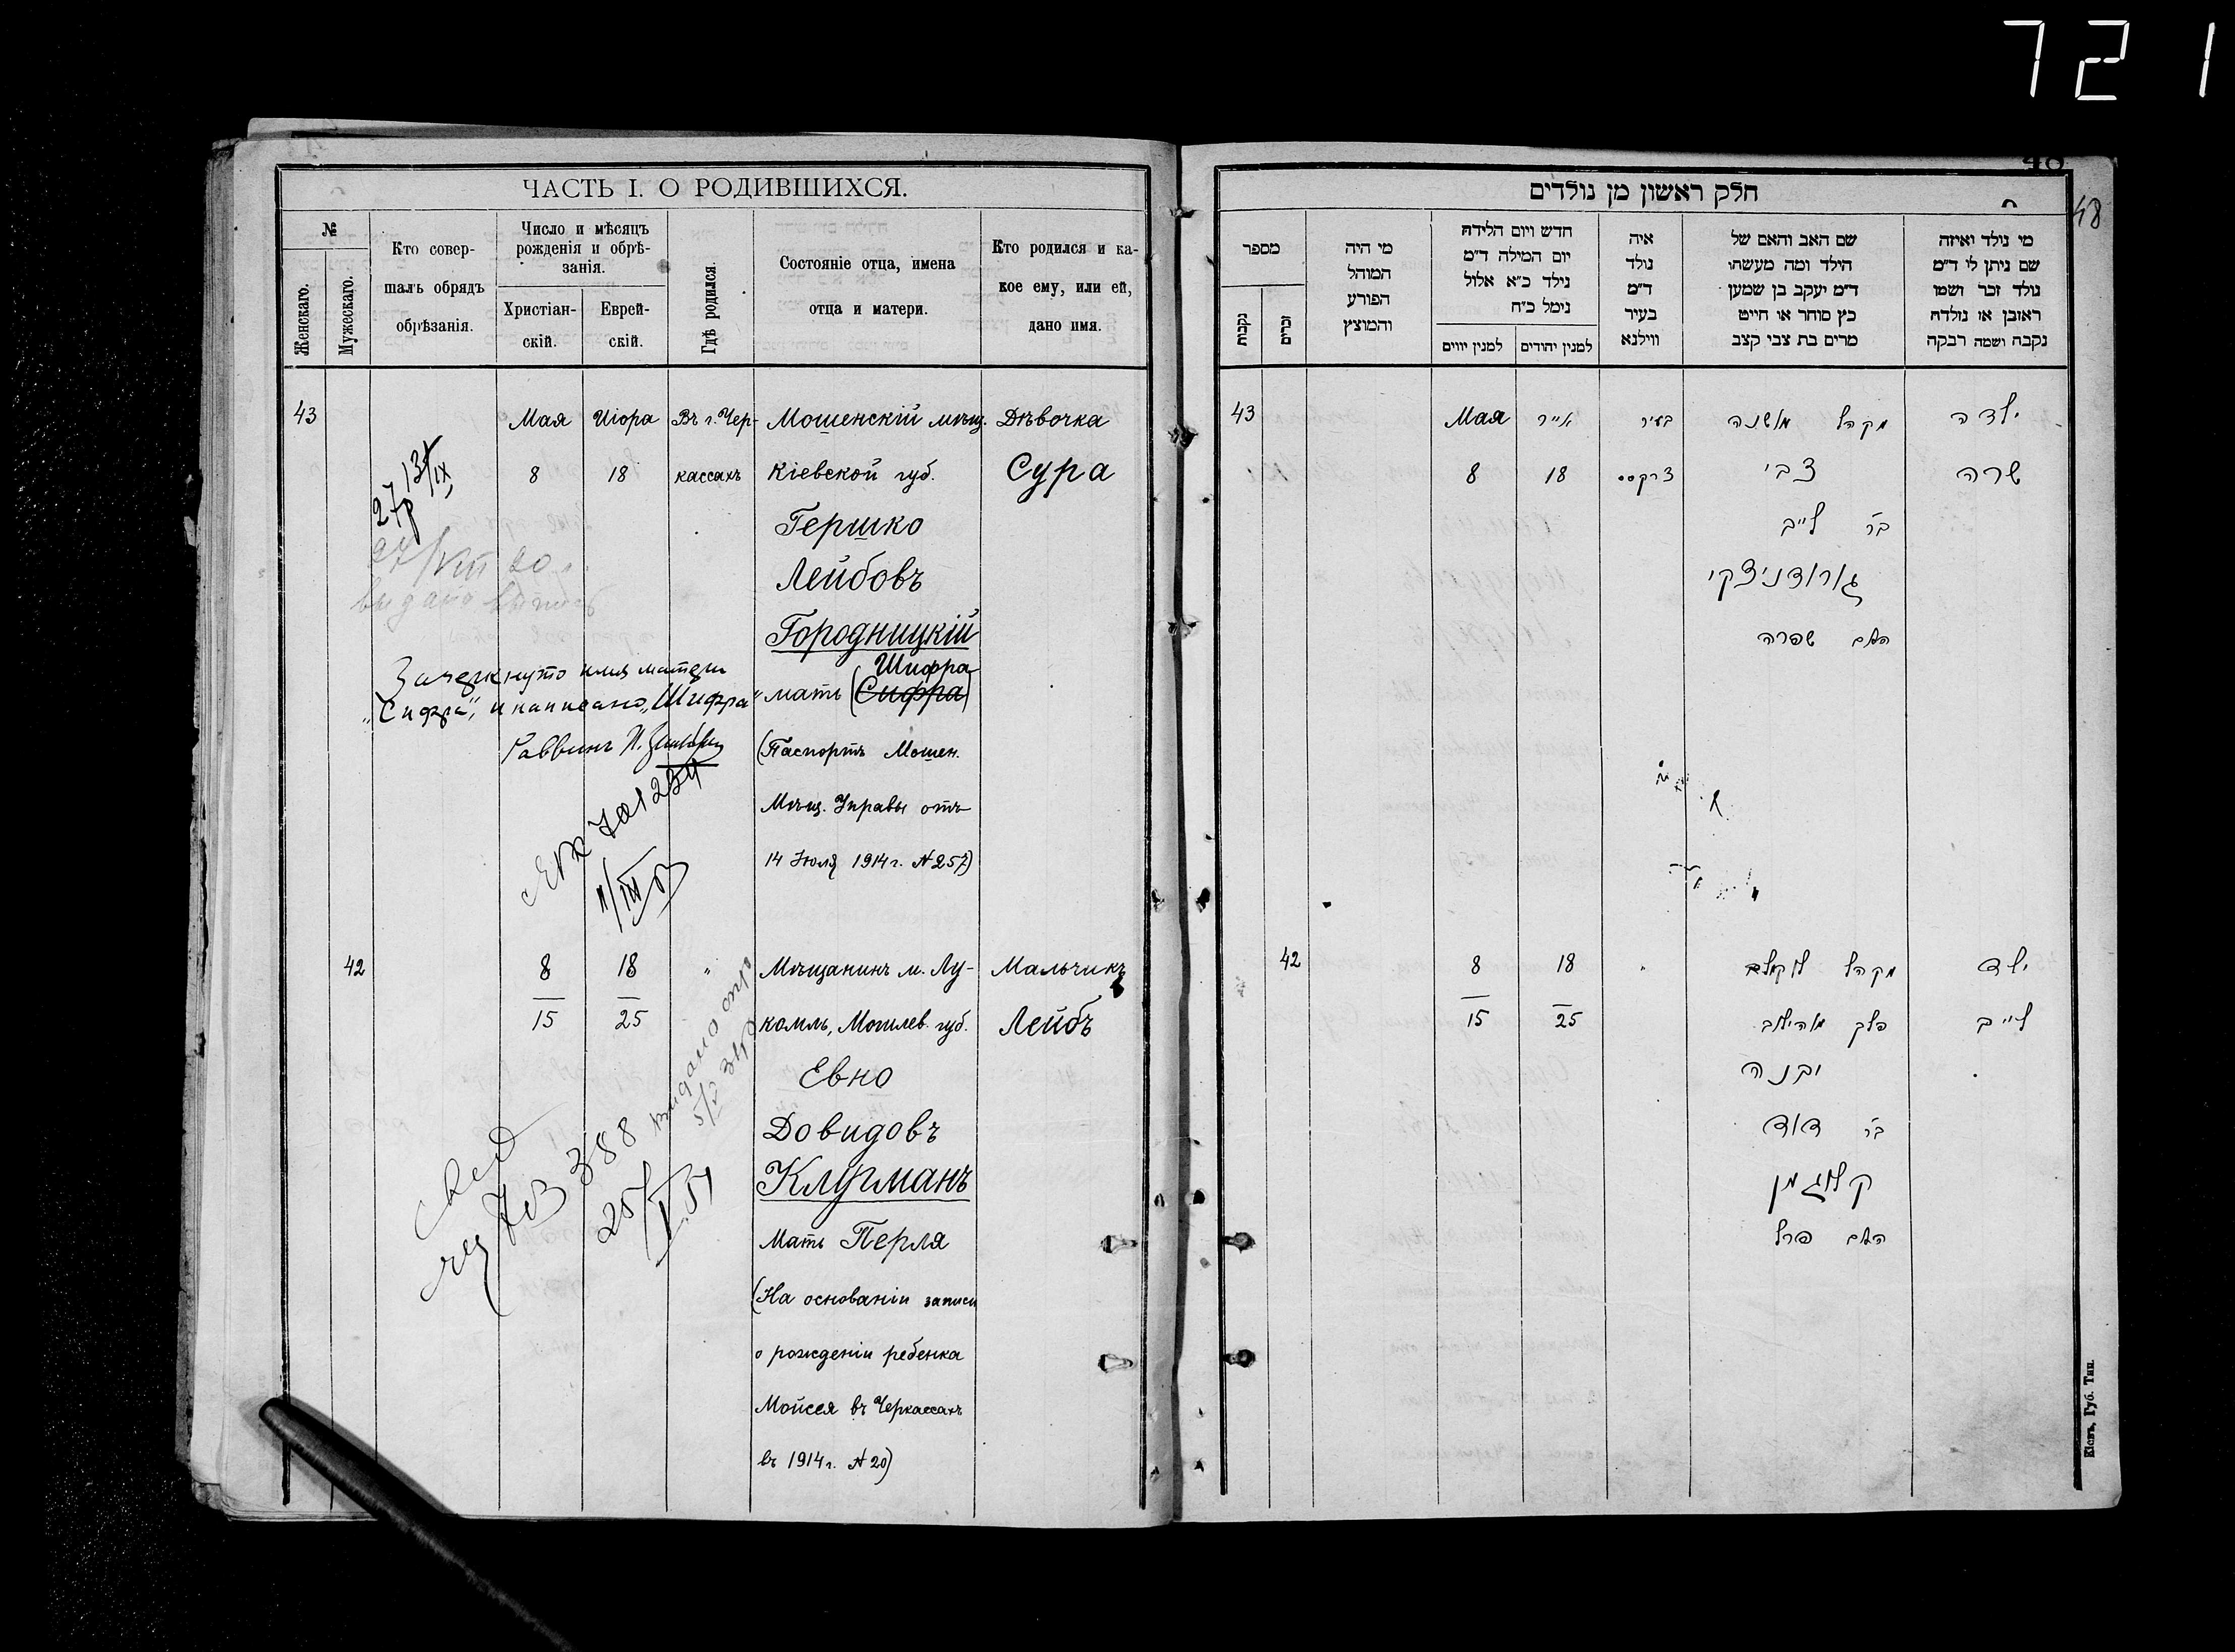 721
ЧАСТЬ I. О РОДИВШИХСЯ.
№
Женскаго.
Мужескаго.
Кто совер-
шалъ обрядъ
обрѣзанія.
Число и мѣсяцъ
рожденія и обрѣ-
занія.
Христіан-
скій.
Еврей-
скій.
Гдѣ родился.
Состояніе отца, имена
отца и матери.
Кто родился и ка-
кое ему, или ей,
дано имя.
43 Мая Иіора Въ г. Чер- Мошенскій мѣщ. Дѣвочка
8 18 кассахъ Кіевской губ. Сура
Гершко
Лейбовъ
Городницкій
Шифра
мать (Сифра)
(Паспортъ Мошен.
Мѣщ. Управы отъ
14 Іюля 1914 г. №257)
13/IX
27/VIII 20
Зачеркнуто имя матери
"Сифра", и написано "Шифра"
Раввинъ
701234
42 8 18 " Мѣщанинъ м. Лу- Мальчикъ
15 25 комль, Могилев. губ. Лейбъ
Евно
Довидовъ
Клугманъ
Мать Перля
(На основаніи записи
о рожденіи ребенка
Мойсея въ Черкассахъ
въ 1914 г. №20)
703388
25/V 51
חלק ראשון מן נולדים
48
מספר
נקבות
זכרים
מי היה
המוהל
הפורע
והמוצץ
חדש ויום הלידה
יום המילה ד״מ
נילד כ״א אלול
נימל כ״ח
למנין יווים
למנין יהודים
איה
נולד
ד״מ
בעיר
ווילנא
שם האב והאם של
הילד ומה מעשהו
ד״מ יעקב בן שמען
כץ סוחר או חייט
מרים בת צבי קצב
מי נולד ואיזה
שם ניתן לי ד״מ
נולד זכר ושמו
ראובן או נולדה
נקבה ושמה רבקה
43 Мая אייר בעיר מקהל מאשנה ילדה
8 18 צרקסס צבי שרה
בר לייב
גוראדניצקי
האם שפרה
42 8 18 " מקהל לוקאמלע ילד
15 25 פלך מאהילוב לייב
יבנה
בר דוד
קלוגמן
האם פרל
Кіевъ, Губ. Тип.